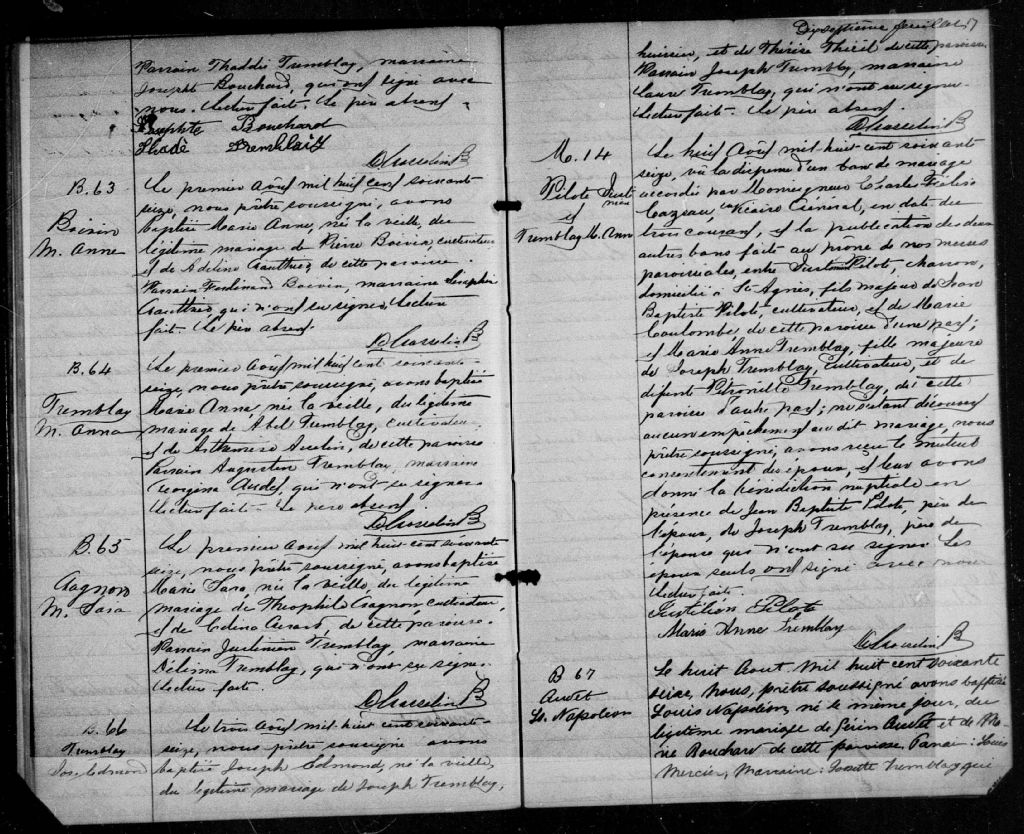 Parrain Thaddée Tremblay, marraine
Josephte Bouchard, qui ont signé avec
nous. Lecture faite. Le père absent.
Josephte Bouchard
Thadé Tremblay
B. 63
Boivin
M. Anne
Le premier Août mil huit cent soixante
seize, nous prêtre soussigné, avons
baptisé Marie Anne, née la veille, du
légitime mariage de Pierre Boivin, cultivateur
et de Adeline Gauthier de cette paroisse.
Parrain Ferdinand Boivin, marraine Séraphie
Gauthier qui n'ont su signer. Lecture
faite. Le père absent.
B. 64
Tremblay
M. Anna
Le premier Août mil huit cent soixante
seize, nous prêtre soussigné, avons baptisé
Marie Anna, née la veille, du légitime
mariage de Abel Tremblay, cultivateur
et de de cette paroisse
Parrain Augustin Tremblay, marraine
Georgina Audet, qui n'ont su signer
Lecture faite. Le père absent
B. 65
Gagnon
M. Sara
Le premier Août mil huit cent soixante
seize, nous prêtre soussigné, avons baptisé
Marie Sara, née la veille, du légitime
mariage de Théophile Gagnon cultivateur,
et de Célina de cette paroisse.
Parrain Justinien Tremblay, marraine
Délima Tremblay, qui n'ont su signer.
Lecture faite.
B. 66
Tremblay
Jos. Edmond
Le trois Août mil huit cent soixante-
seize, nous prêtre soussigné avons
baptisé Joseph Edmond, né la veille,
du légitime mariage de Joseph Tremblay,
Dixseptième feuillet. 17
et de Thérèse de cette paroisse.
Parrain Joseph Tremblay, marraine
Laure Tremblay, qui n'ont su signer.
Lecture faite. Le père absent.
M. 14
Pilote Justi
nien
et
Tremblay M. Ann
Le huit Août mil huit cent soixante
seize, vu la dispense d'un ban de mariage
accordée par Monseigneur Charles Félix
Cazeau, Vicaire Général, en date du
trois courant, et la publication des deux
autres bans faite au prône de nos messes
paroissiales, entre Pilote, charron,
domicilié à St Agnès, fils majeur de Jean
Baptiste Pilote, cultivateur, et de Marie
Coulombe de cette paroisse d'une part;
et Marie Anne Tremblay, fille majeure
de Joseph Tremblay, Cultivateur, et de
défunte Pétronille Tremblay, de cette
paroisse d'autre part; ne s'étant découvert
aucun empêchement au dit mariage, nous
prêtre soussigné, avons reçu le mutuel
consentement des époux, et leur avons
donné la bénédiction nuptiale en
présence de Jean Baptiste Pilote, père de
l'époux, de Joseph Tremblay, père de
l'épouse qui n'ont su signer Les
époux seuls ont signé avec nous
Lecture faite.
Pilote
Marie Anne Tremblay
B 67
Audet
Ls. Napoléon
Le huit Aout mil huit cent soixante
seize, Nous, prêtre soussigné avons baptisé
Louis Napoléon, né le même jour, du
légitime mariage de Audet et de Ma-
rie Bouchard de cette paroisse Parrain : Louis
Mercier, Marraine : Josette Tremblay qui